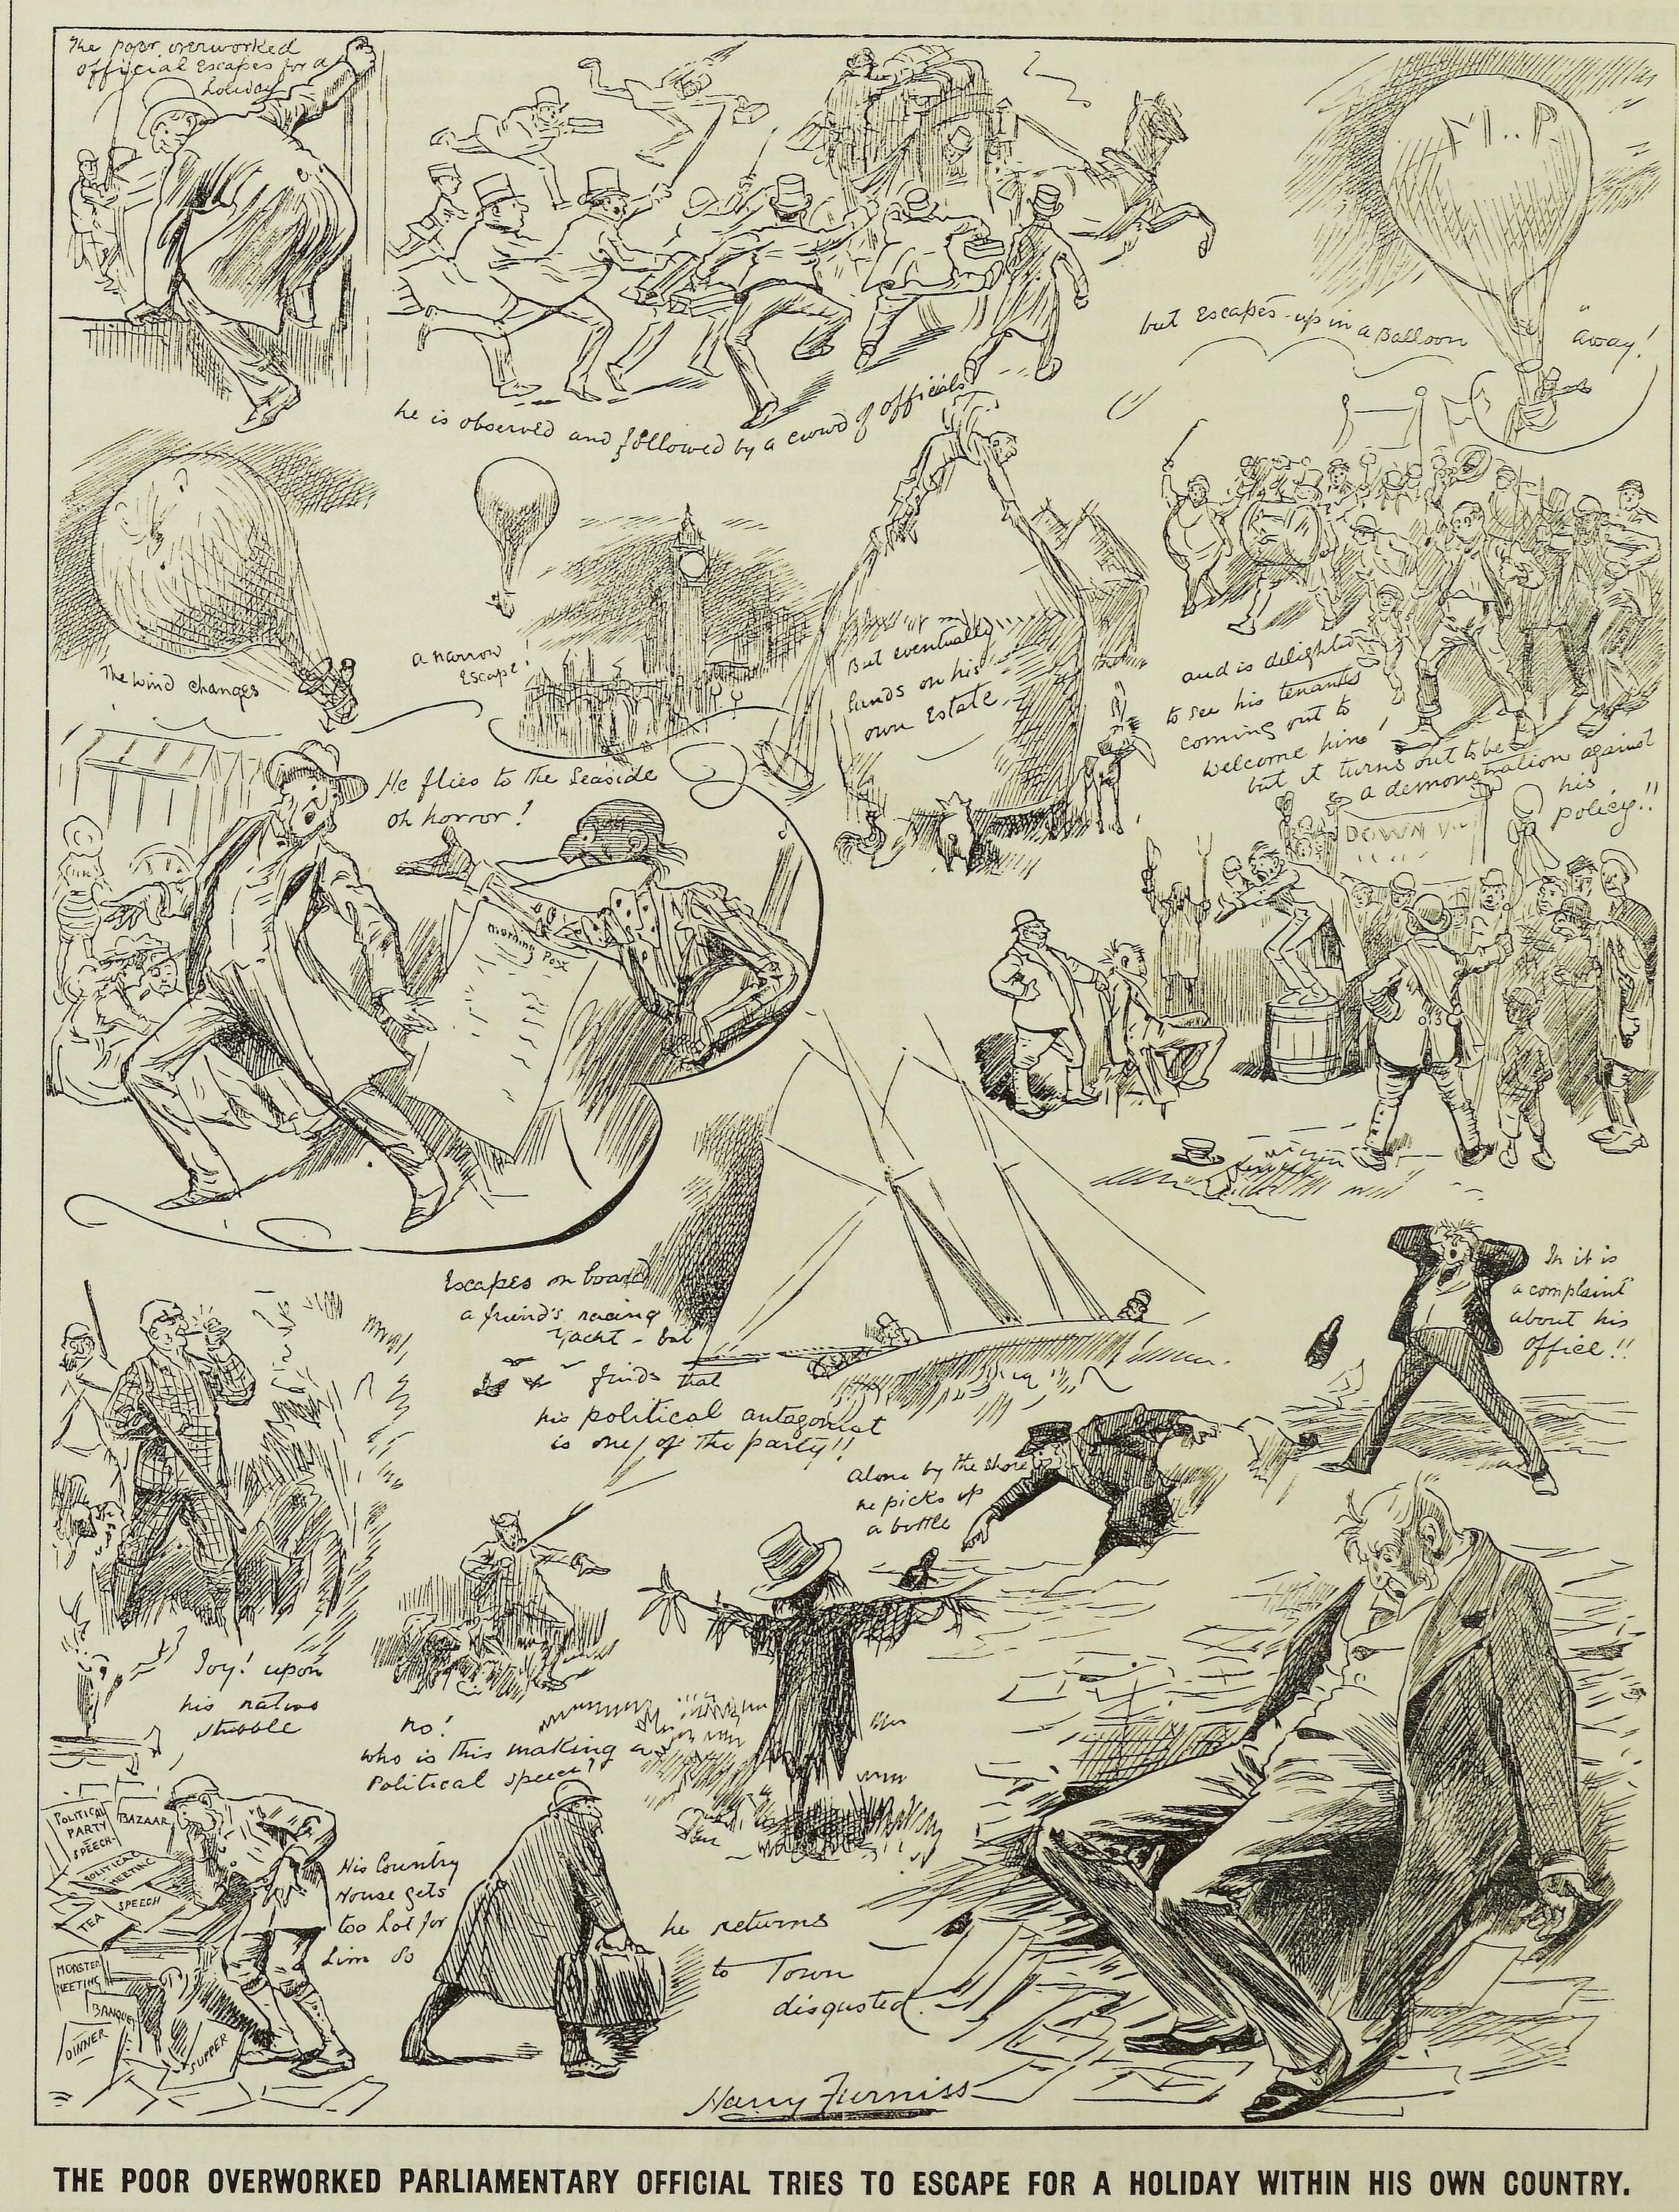 The poor overworked
official escapes for a
holiday
he is observed and followed by a crowd of officials
M..P
but escapes - up in a Balloon
"away!
The wind changes
a narrow
escape!
But eventually
lands on his
own Estate
and is delighted
to see his tenants
coming out to
welcome him!
but it turns out to be
a demonstration against
his
policy!!
DOWN
He flies to the Seaside
oh horror!
Morning
Post
Escapes on board
a friend's racing
Yacht - but
finds that
his political antagonist
is one of the party!!
alone by the shore
he picks up
a bottle
In it is
a complaint
about his
office!!
Joy! upon
his native
stubble
no!
who is this making a
Political speech?
POLITICAL
PARTY
SPEECH
BAZAAR
POLITICAL
MEETING
SPEECH
TEA
MONSTER
MEETING
BANQUET
DINNER
SUPPER
His Country
House gets
too hot for
him so
he returns
to Town
disgusted
Harry Furniss
THE POOR OVERWORKED PARLIAMENTARY OFFICIAL TRIES TO ESCAPE FOR A HOLIDAY WITHIN HIS OWN COUNTRY.